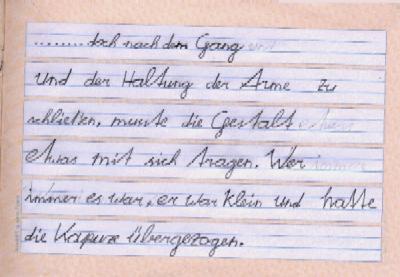 ........doch nach dem Gang und
und der Haltung der Arme zu
schließen, musste die Gestalt etwas
etwas mit sich tragen. Wer immer
immer es war, er war klein und hatte
die Kapuze übergezogen.